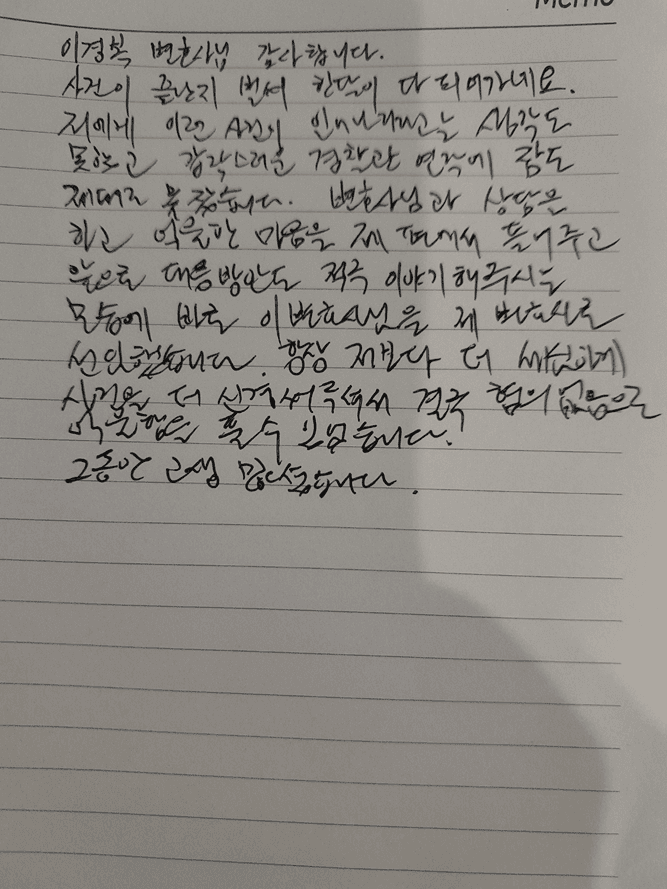 Memo
이경복 변호사님 감사합니다.
사건이 끝난지 벌써 한달이 다 되어가네요.
저에게 이런 사건이 일어나리라고는 생각도
못하고 갑작스러운 경찰관 연락에 잠도
제대로 못 잤습니다. 변호사님과 상담을
하고 억울한 마음을 제 편에서 들어주고
앞으로 대응방안도 적극 이야기해주시는
모습에 바로 이변호사님을 제 변호사로
선임했습니다. 항상 저보다 더 세심하게
사건을 더 신경써주셔서 결국 혐의없음으로
억울함을 풀 수 있었습니다.
그동안 고생 많으셨습니다.